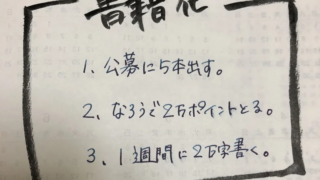 書籍化
1、公募に5本出す。
2、なろうで2万ポイントとる。
3、1週間に2万字書く。